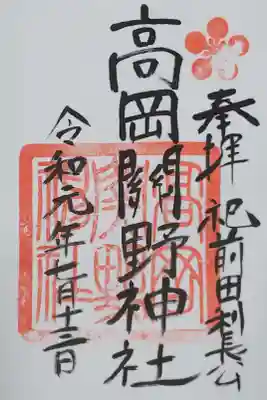 奉拝 祀前田利長公
高岡關野神社
令和元年七月十三日